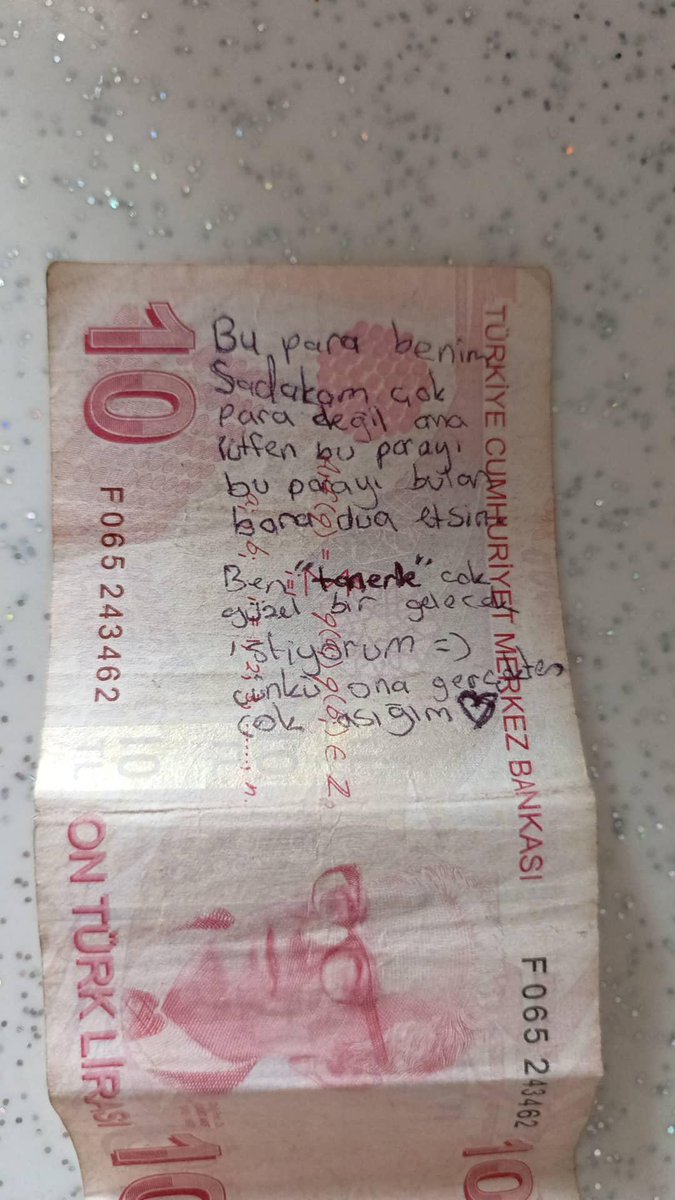 Bu para benim
Sadakam çok
para değil ama
lütfen bu parayı
bu parayı bulan
bana dua etsin
Ben "tanerle" çok
güzel bir gelecek
istiyorum =)
çünkü ona gerçekten
çok aşığım
10
F065 243462
TÜRKİYE CUMHURİYET MERKEZ BANKASI
10
TL
ON TÜRK LİRASI
F065 243462
10
10